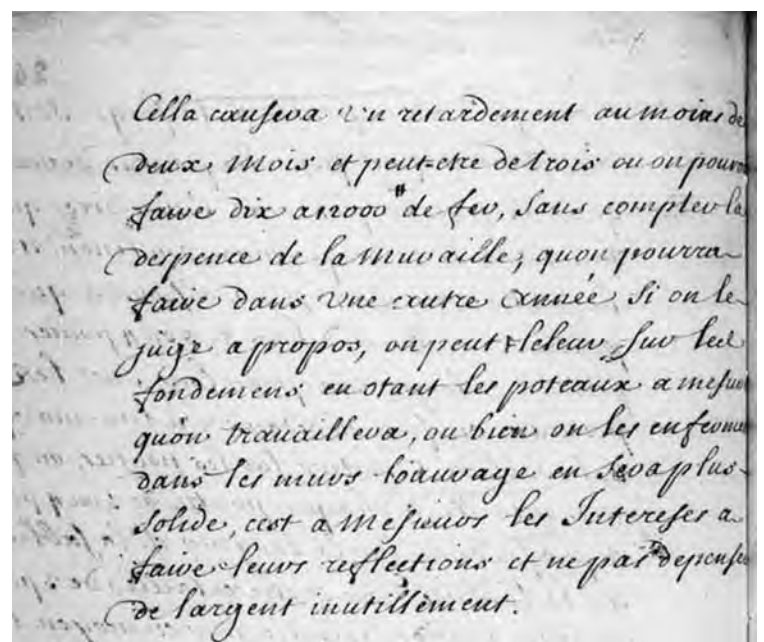 Cella causera un retardement au moins de
deux mois et peut-etre de trois ou on pourra
faire dix a 12000 ₶ de fer, sans compter la
despence de la muraille, quon pourra
faire dans une autre année si on le
juge apropos, on peut sur les
fondemens en otant les poteaux a mesure
quon travaillera, ou bien on les enfermer
dans les murs louvrage en sera plus
solide, cest a Messieurs les Intereses a
faire leurs reflections et ne pas depenser
de largent inutillement.